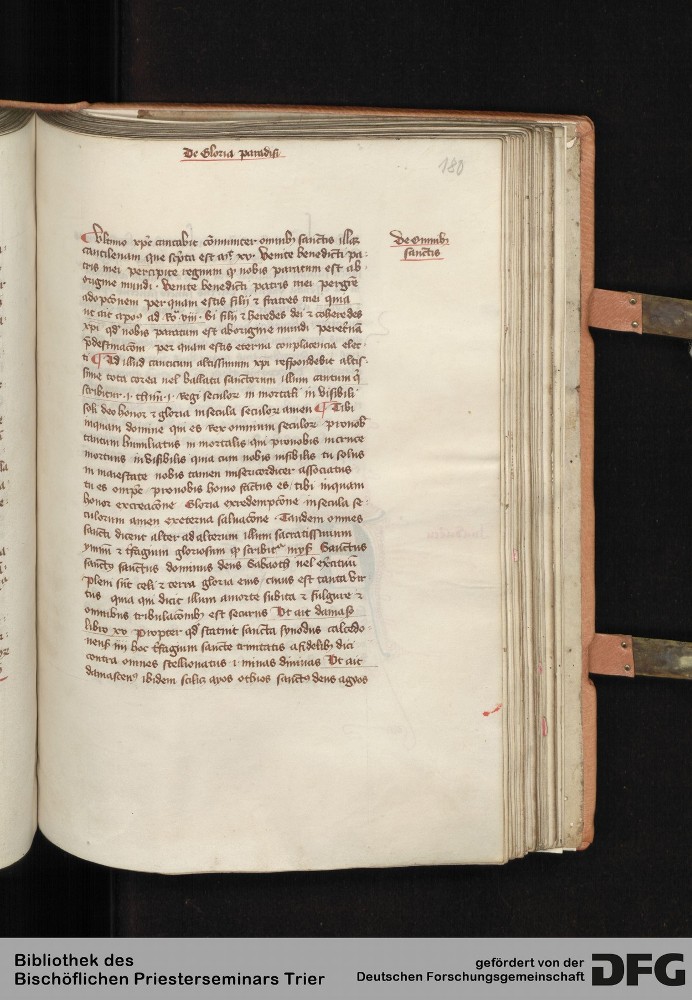 De Gloria paradisi
180
Ultimo xpc cantabit cōmuniter omnibꝫ sanctis illaꝫ
cantilenam que scpta est mͭ xxv Venite benedicti pa
tris mei percipite regnum qͥ nobis paratum est ab
origine mundi · Venite benedicti patris mei per
adopcōnem per quam estis filii ⁊ fratres mei quia
ut ait apoꝰ ad Roͣ viii · Si filii ⁊ heredes dei ⁊ coheredes
xpi qd nobis paratum est aborigine mundi
pͬdestinacōm per quam estis eterna conplacencia elec
ti Ad illud canticum altissimum xpi respondebit altis
sime tota corea uel ballata sanctorum illum cantum qͥ
scribitur · i · · i · Regi seculoꝝ in mortali in visibili
soli deo honor ⁊ gloria in secula seculoꝝ amen Tibi
inquam domine qui es Rex omnium seculoꝝ pronobꝫ
tantum humiliatus in mortalis qui pronobis in cruce
mortuus invisibilis quia cum nobis insibilis tu solus
in maiestate nobis tamen misericorditer associatus
tu es pronobis homo factus es tibi inquam
honor excreacōne Gloria exredempcōne in secula se
culorum amen exeterna saluacōne · Tandem omnes
sancti dicent alter ad alterum illum sacratissimum
ymnū ⁊ tͥsagium gloriosum qͥ scribitͬ Sanctus
sanctꝰ sanctus dominus deus Sabaoth uel exercituū
pleni sūt celi ⁊ terra gloria eius cuius est tanta vir
tus quia qui dicit illum amorte subita ⁊ fulgure ⁊
omnibus tribulacōnibꝫ est securus Ut ait damasꝰ
libro xv Propter qd statuit sancta synodus calcedo
nensꝭ iiij hoc tͥsagium sancte trinitatis afidelibꝫ dici
contra omnes stellionatus ⁊ minas diuinas Ut ait
damascenꝰ ibidem scilicꝫ ayos otheos sanctꝰ deus agyos
De Omnibꝫ
sanctis
Bibliothek des
Bischöflichen Priesterseminars Trier
gefördert von der
Deutschen Forschungsgemeinschaft
DFG